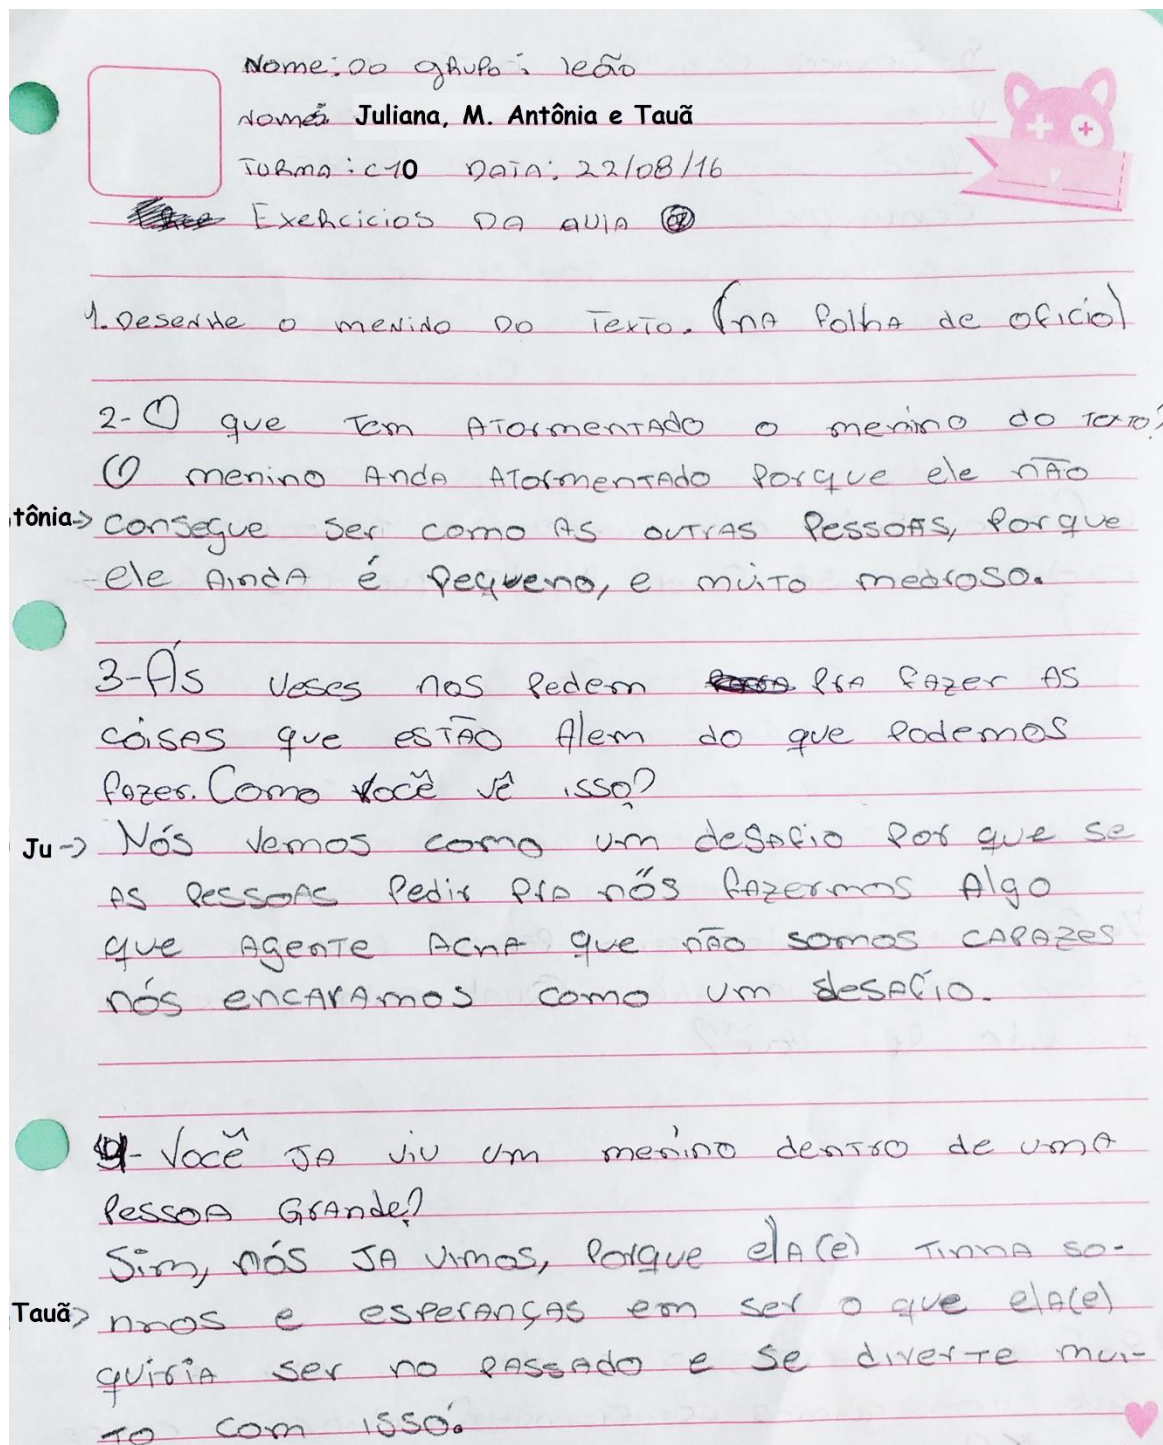 Nome: Do gRupo: leão
Nomes Juliana, M. Antônia e Tauã
TURma: c10 DATA: 22/08/16
Exercicios DA aula
1. Desenhe o menino Do Texto. (nA folhA de oficio)
2- O que Tem ATormenTADo o menino do Texto?
O menino AndA ATormenTADo Porque ele nÃo
tônia-> consegue ser como As ouTrAs PessoAs, Porque
ele AindA é Pequeno, e muiTo medroso.
3- Ás veses nos Pedem PrA fAzer As
coisAs que esTÃo Alem do que Podemos
fAzer. Como você vê isso?
Ju -> Nós vemos como um desAfio Por que se
As PessoAs Pedir PrA nós fAzermos Algo
que AgenTe AchA que nÃo somos cAPAzes
nós encArAmos como um desAfio.
4- Você JA viu um menino denTro de umA
PessoA GrAnde?
Sim, nós JA vimos, Porque elA(e) TinhA so-
Tauã> nhos e esPerAnçAs em ser o que elA(e)
quiriA ser no PAssAdo e se diverTe mui-
To com isso.